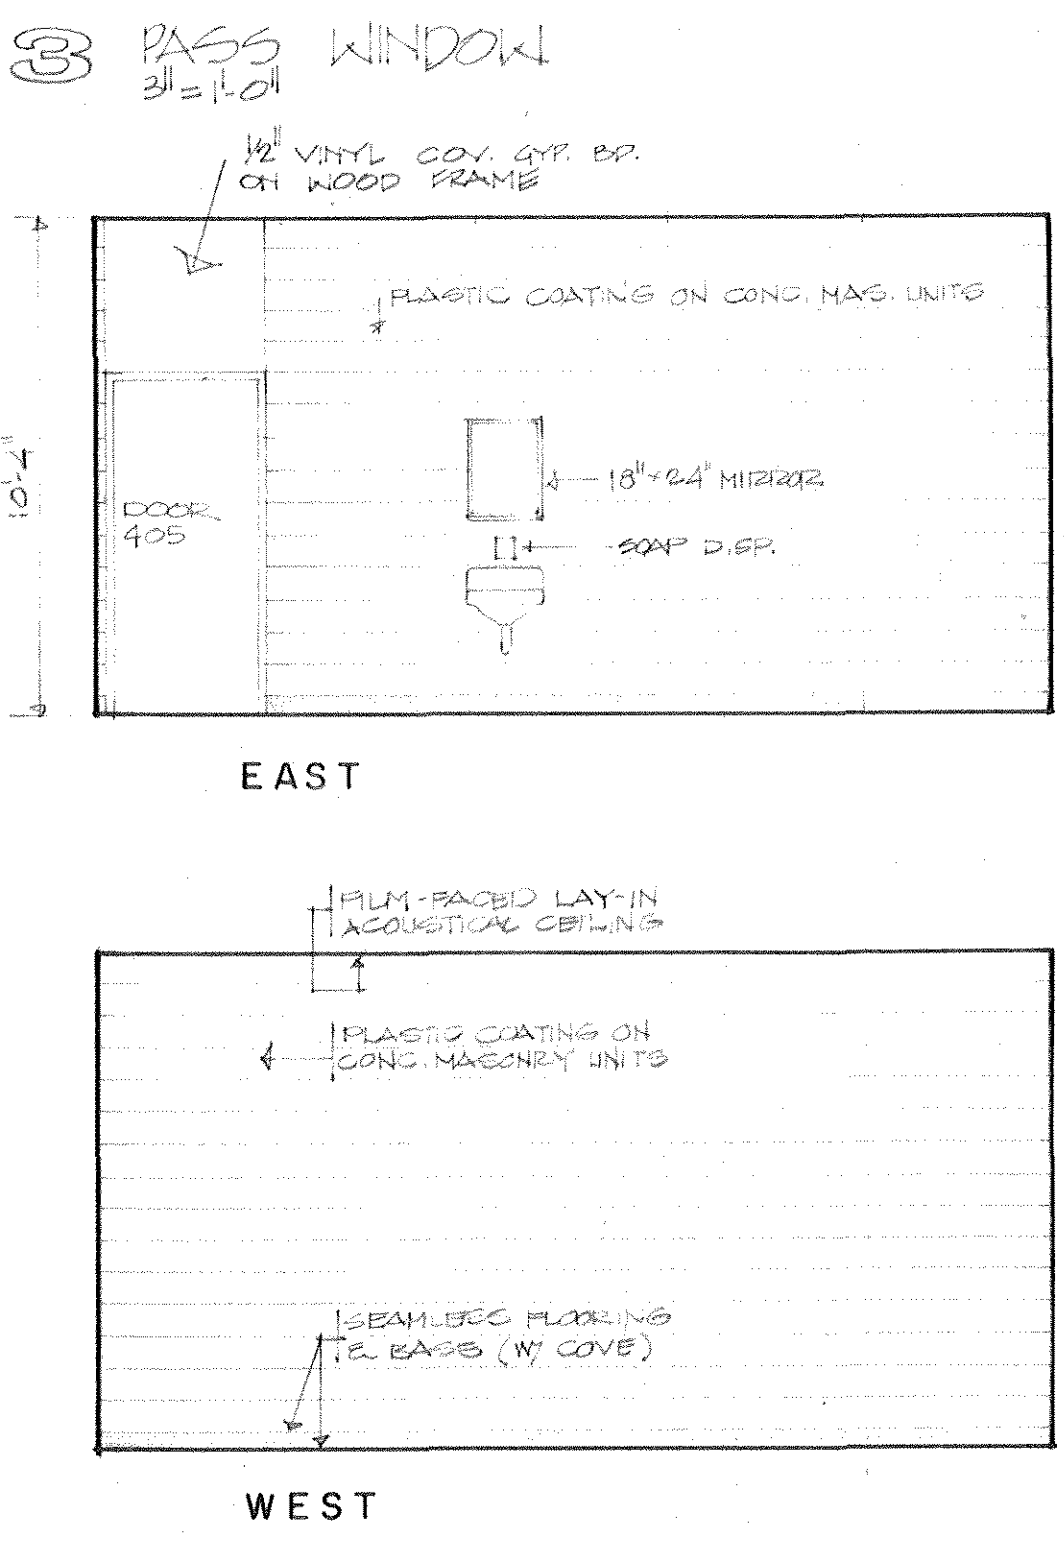 3 PASS WINDOW
3"=1'-0"
1/2" VINYL COV. GYP. BD.
ON WOOD FRAME
PLASTIC COATING ON CONC. MAS. UNITS
10'-4"
18"×24" MIRROR
DOOR
405
SOAP DISP.
EAST
FILM-FACED LAY-IN
ACOUSTICAL CEILING
PLASTIC COATING ON
CONC. MASONRY UNITS
SEAMLESS FLOORING
& BASE (W/ COVE)
WEST